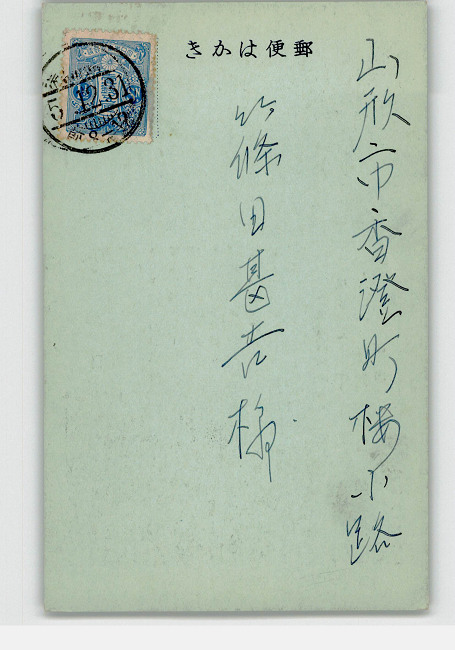 郵便はかき
山形市香澄町桜小路
篠田甚吉様
12.31